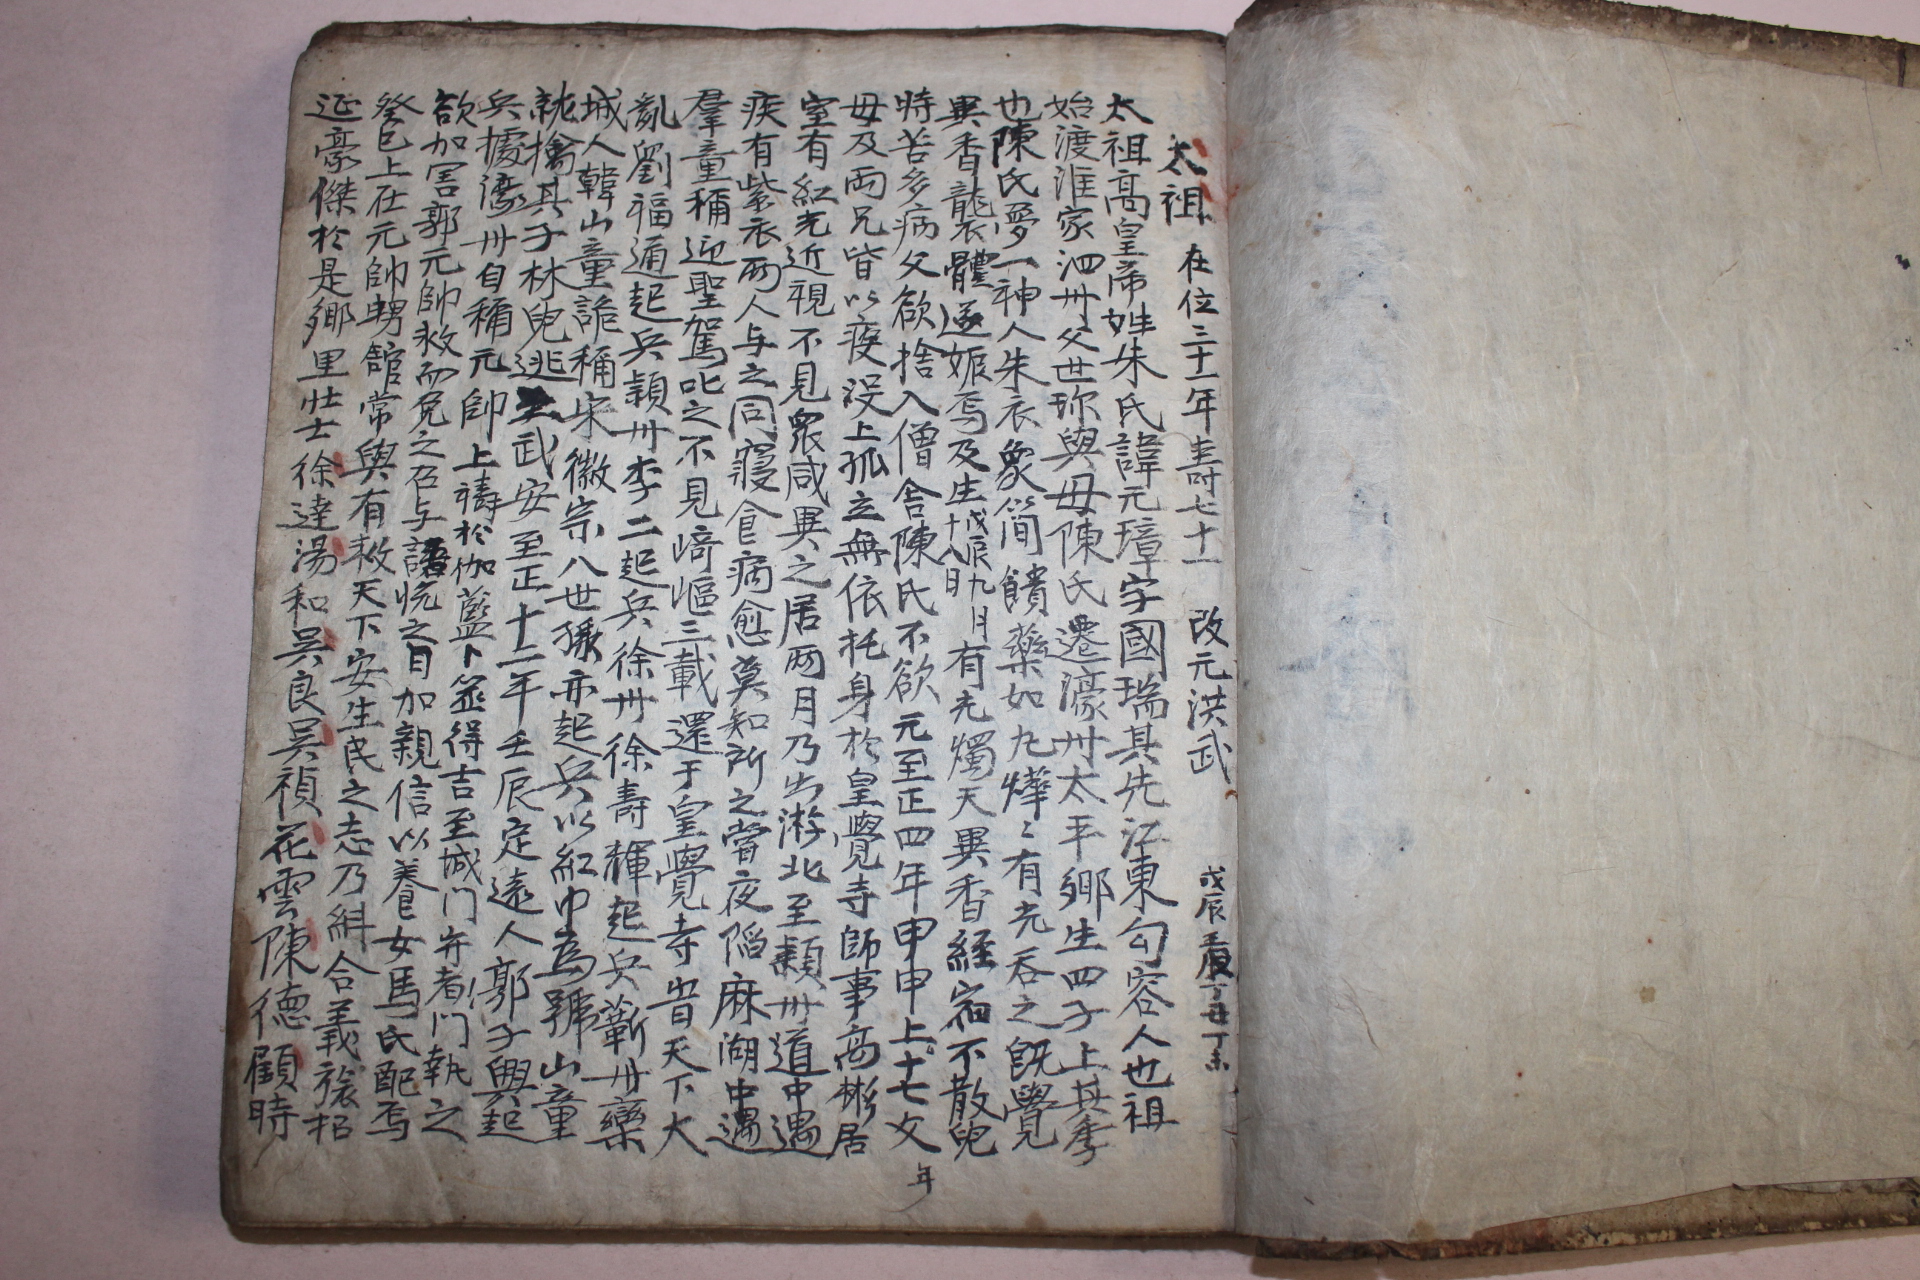 太祖 在位三十一年壽七十一 改元洪武 戊辰 丁丑丁未
太祖高皇帝姓朱氏諱元璋字國瑞其先江東勾容人也祖
始渡淮家泗州父世珎與母陳氏遷濠州太平鄉生四子上其季
也陳氏夢一神人朱衣象簡饋藥如丸燁〻有光吞之旣覺
異香襲體遂娠焉及生戊辰九月十八日有光燭天異香經宿不散兒
時苦多病父欲捨入僧舍陳氏不欲元至正四年甲申上年十七父
母及兩兄皆以疫没上孤立無依托身於皇覺寺師事高彬居
室有紅光近視不見衆咸異之居两月乃出游北至潁州道中遇
疾有紫衣两人与之同寢食病愈莫知所之嘗夜陷麻湖中遇
羣童稱迎聖駕叱之不見崎嶇三載還于皇覺寺時天下大
亂劉福通起兵穎州李二起兵徐州徐壽輝起兵蘄州欒
城人韓山童詭稱宋徽宗八世孫亦起兵以紅巾為號山童
就擒其子林兒逃武安至正十二年壬辰定遠人郭子興起
兵據濠州自稱元帥上禱於伽藍卜筮得吉至城门守者门執之
欲加害郭元帥救而免之召与語悅之日加親信以養女馬氏配焉
癸巳上在元帥甥舘常與有救天下安生民之志乃糾合義旅招
延豪傑於是鄉里壮士徐達湯和吳良吳禎花雲陳德顧時